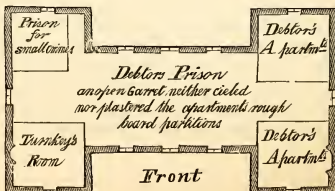 Prison
for
small crimes
Debtor's
Apartmts
Debtors Prison
an open Garret, neither cieled
nor plastered the apartments rough
board partitions
Turnkey's
Room
Debtor's
Apartmt
Front